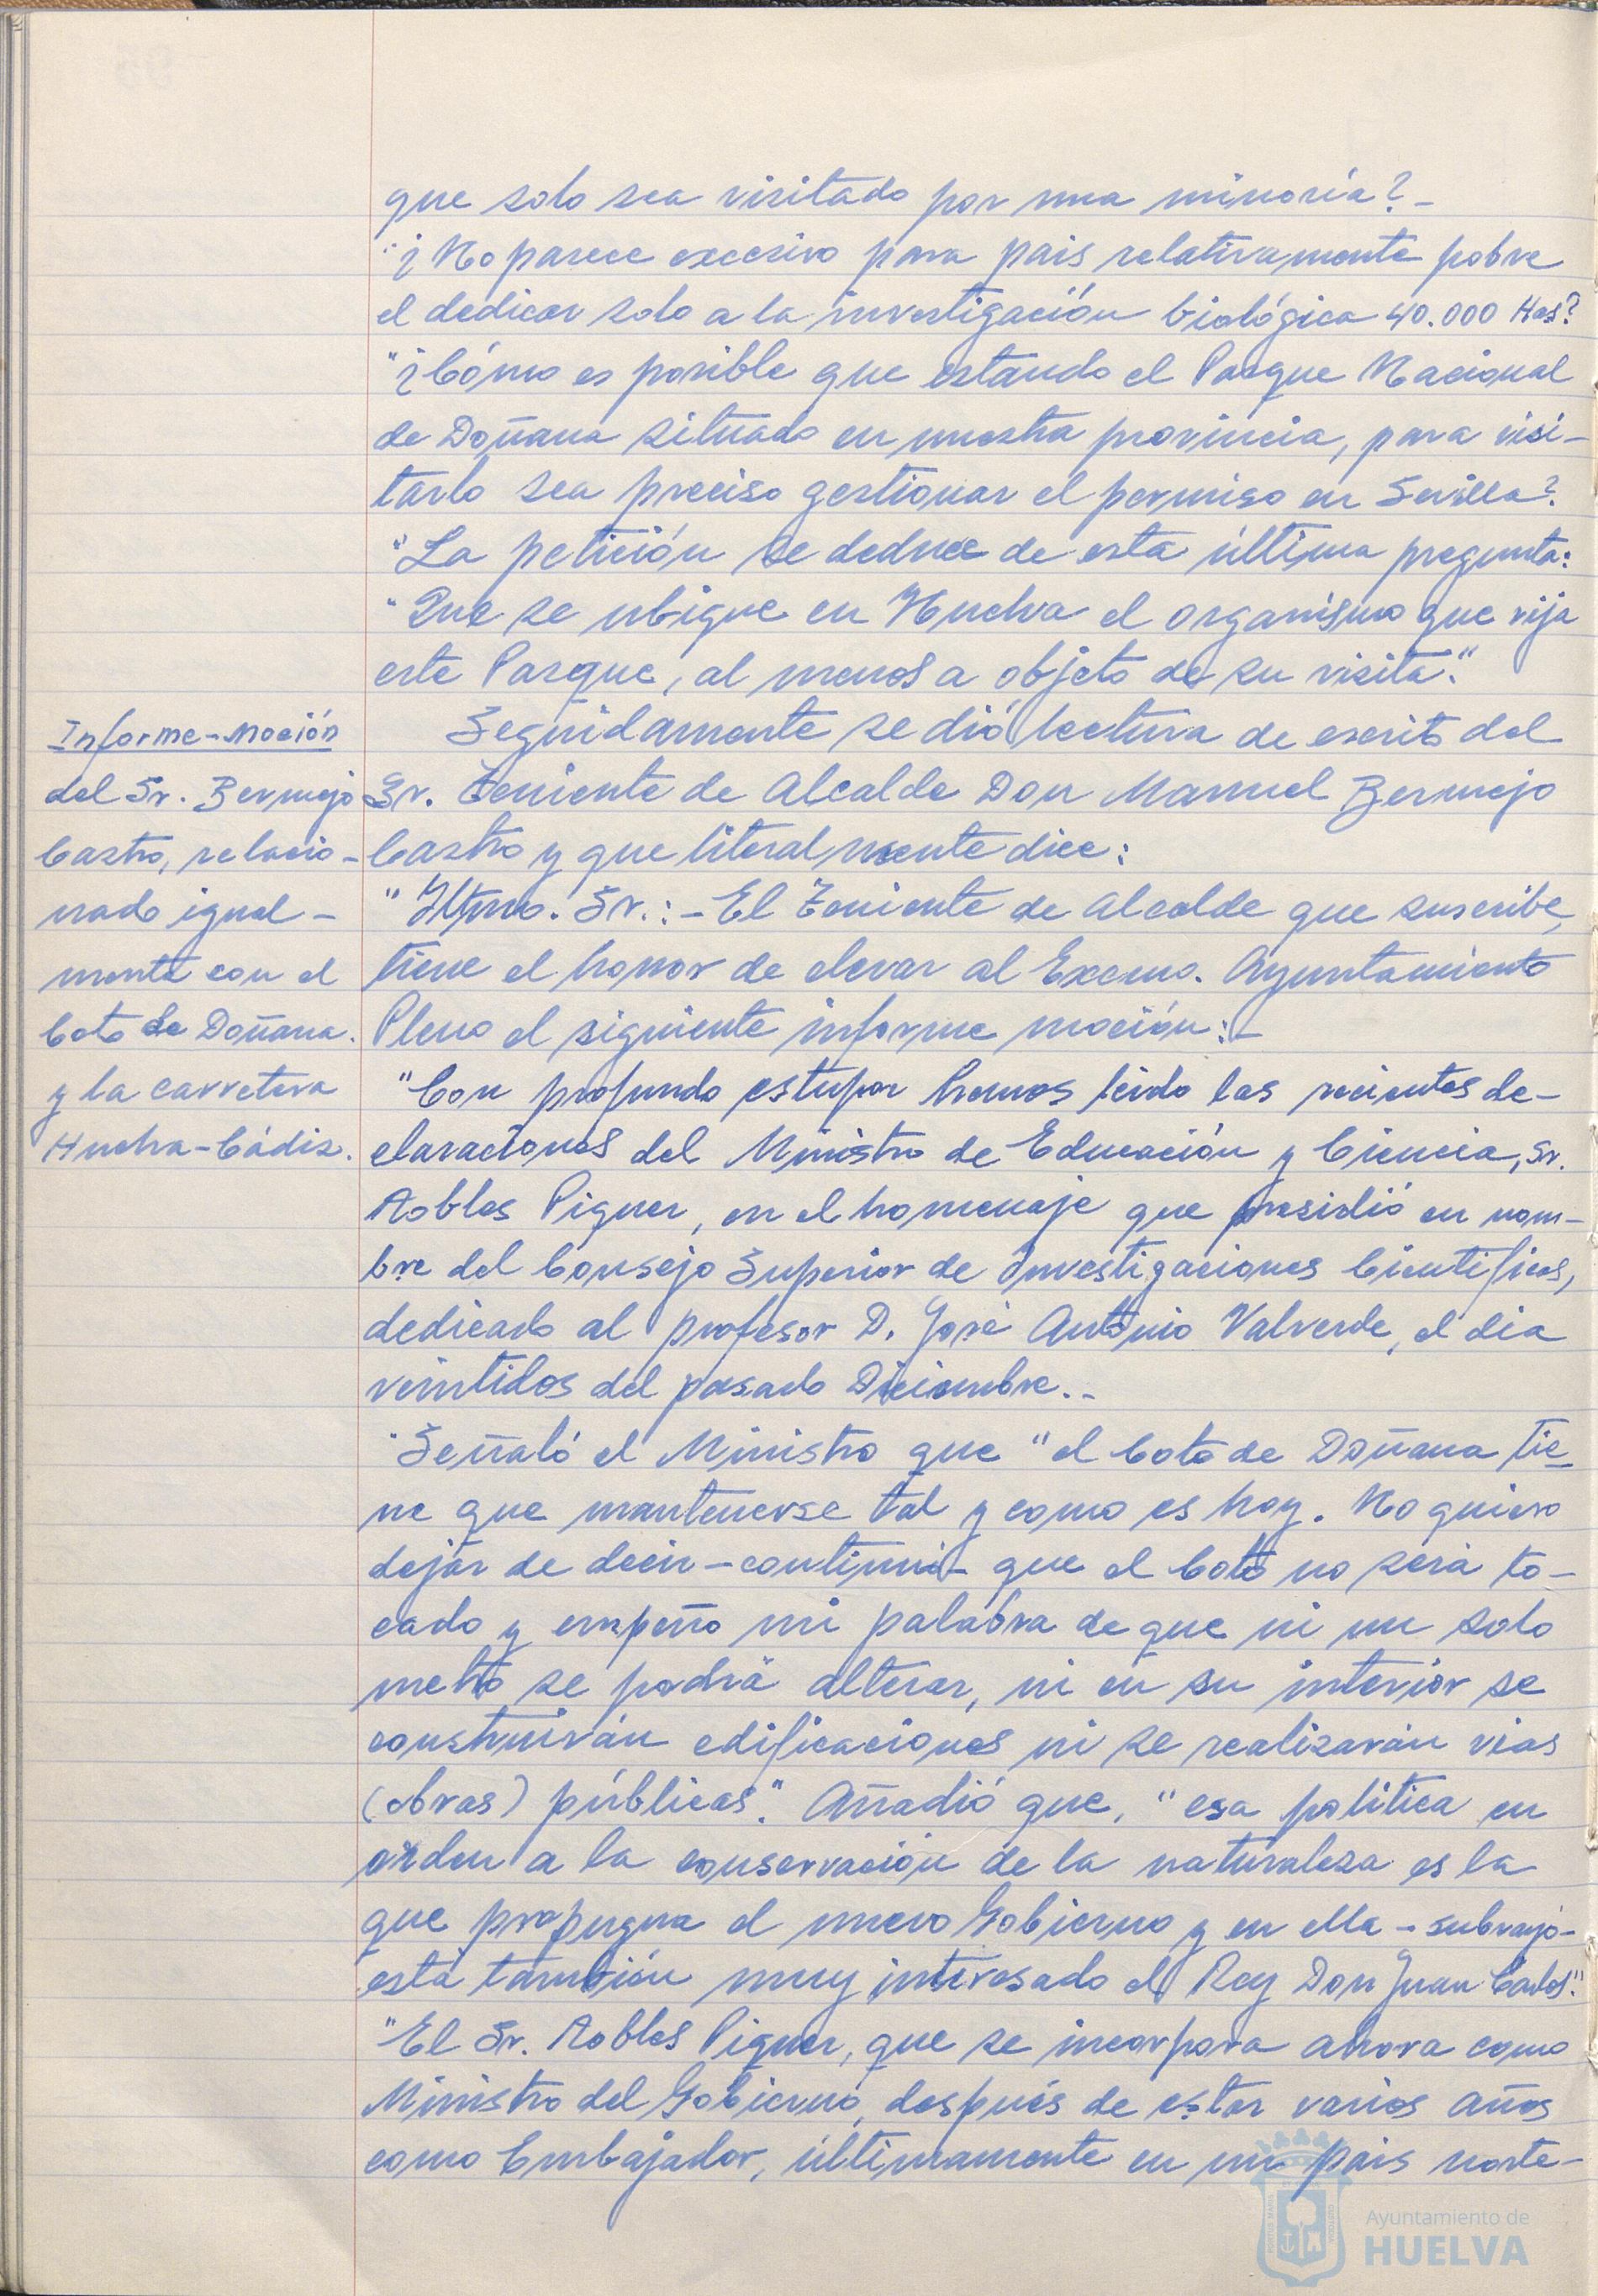 que solo sea visitado por una minoría?-
"¿No parece excesivo para pais relativamente pobre
el dedicar solo a la investigación biológica 40.000 Has?
"¿Cómo es posible que estando el Parque Nacional
de Doñana situado en nuestra provincia, para visi-
tarlo sea preciso gestionar el permiso en Sevilla?.
"La petición se deduce de esta última pregunta:
"Que se ubique en Huelva el organismo que rija
este Parque, al menos a objeto de su visita."
Informe-moción
del Sr. Bermejo
Castro, relacio-
nado igual-
mente con el
Coto de Doñana.
y la carretera
Huelva-Cádiz.
Seguidamente se dió lectura de escrito del
Sr. Teniente de Alcalde Don Manuel Bermejo
Castro y que literalmente dice:
"Iltmo. Sr.:-El Teniente de Alcalde que suscribe,
tiene el honor de elevar al Excmo. Ayuntamiento
Pleno el siguiente informe moción:-
"Con profundo estupor hemos leido las recientes de-
claraciones del Ministro de Educación y Ciencia, Sr.
Robles Piquer, en el homenaje que presidió en nom-
bre del Consejo Superior de Investigaciones Cientificas,
dedicado al profesor D. José Antonio Valverde, el dia
veintidos del pasado Diciembre..
"Señaló el Ministro que "el Coto de Doñana tie-
ne que mantenerse tal y como es hoy. No quiero
dejar de decir-continuó- que el Coto no será to-
cado y empeño mi palabra de que ni un solo
metro se podrá alterar, ni en su interior se
construirán edificaciones ni se realizarán vias
(obras) públicas". Añadió que, "esa politica en
orden a la conservación de la naturaleza es la
que propugna el nuevo Gobierno y en ella -subrayó-
está también muy interesado el Rey Don Juan Carlos".
"El Sr. Robles Piquer, que se incorpora ahora como
Ministro del Gobierno, después de estar varios años
como Embajador, últimamente en un pais norte-
Ayuntamiento de
HUELVA